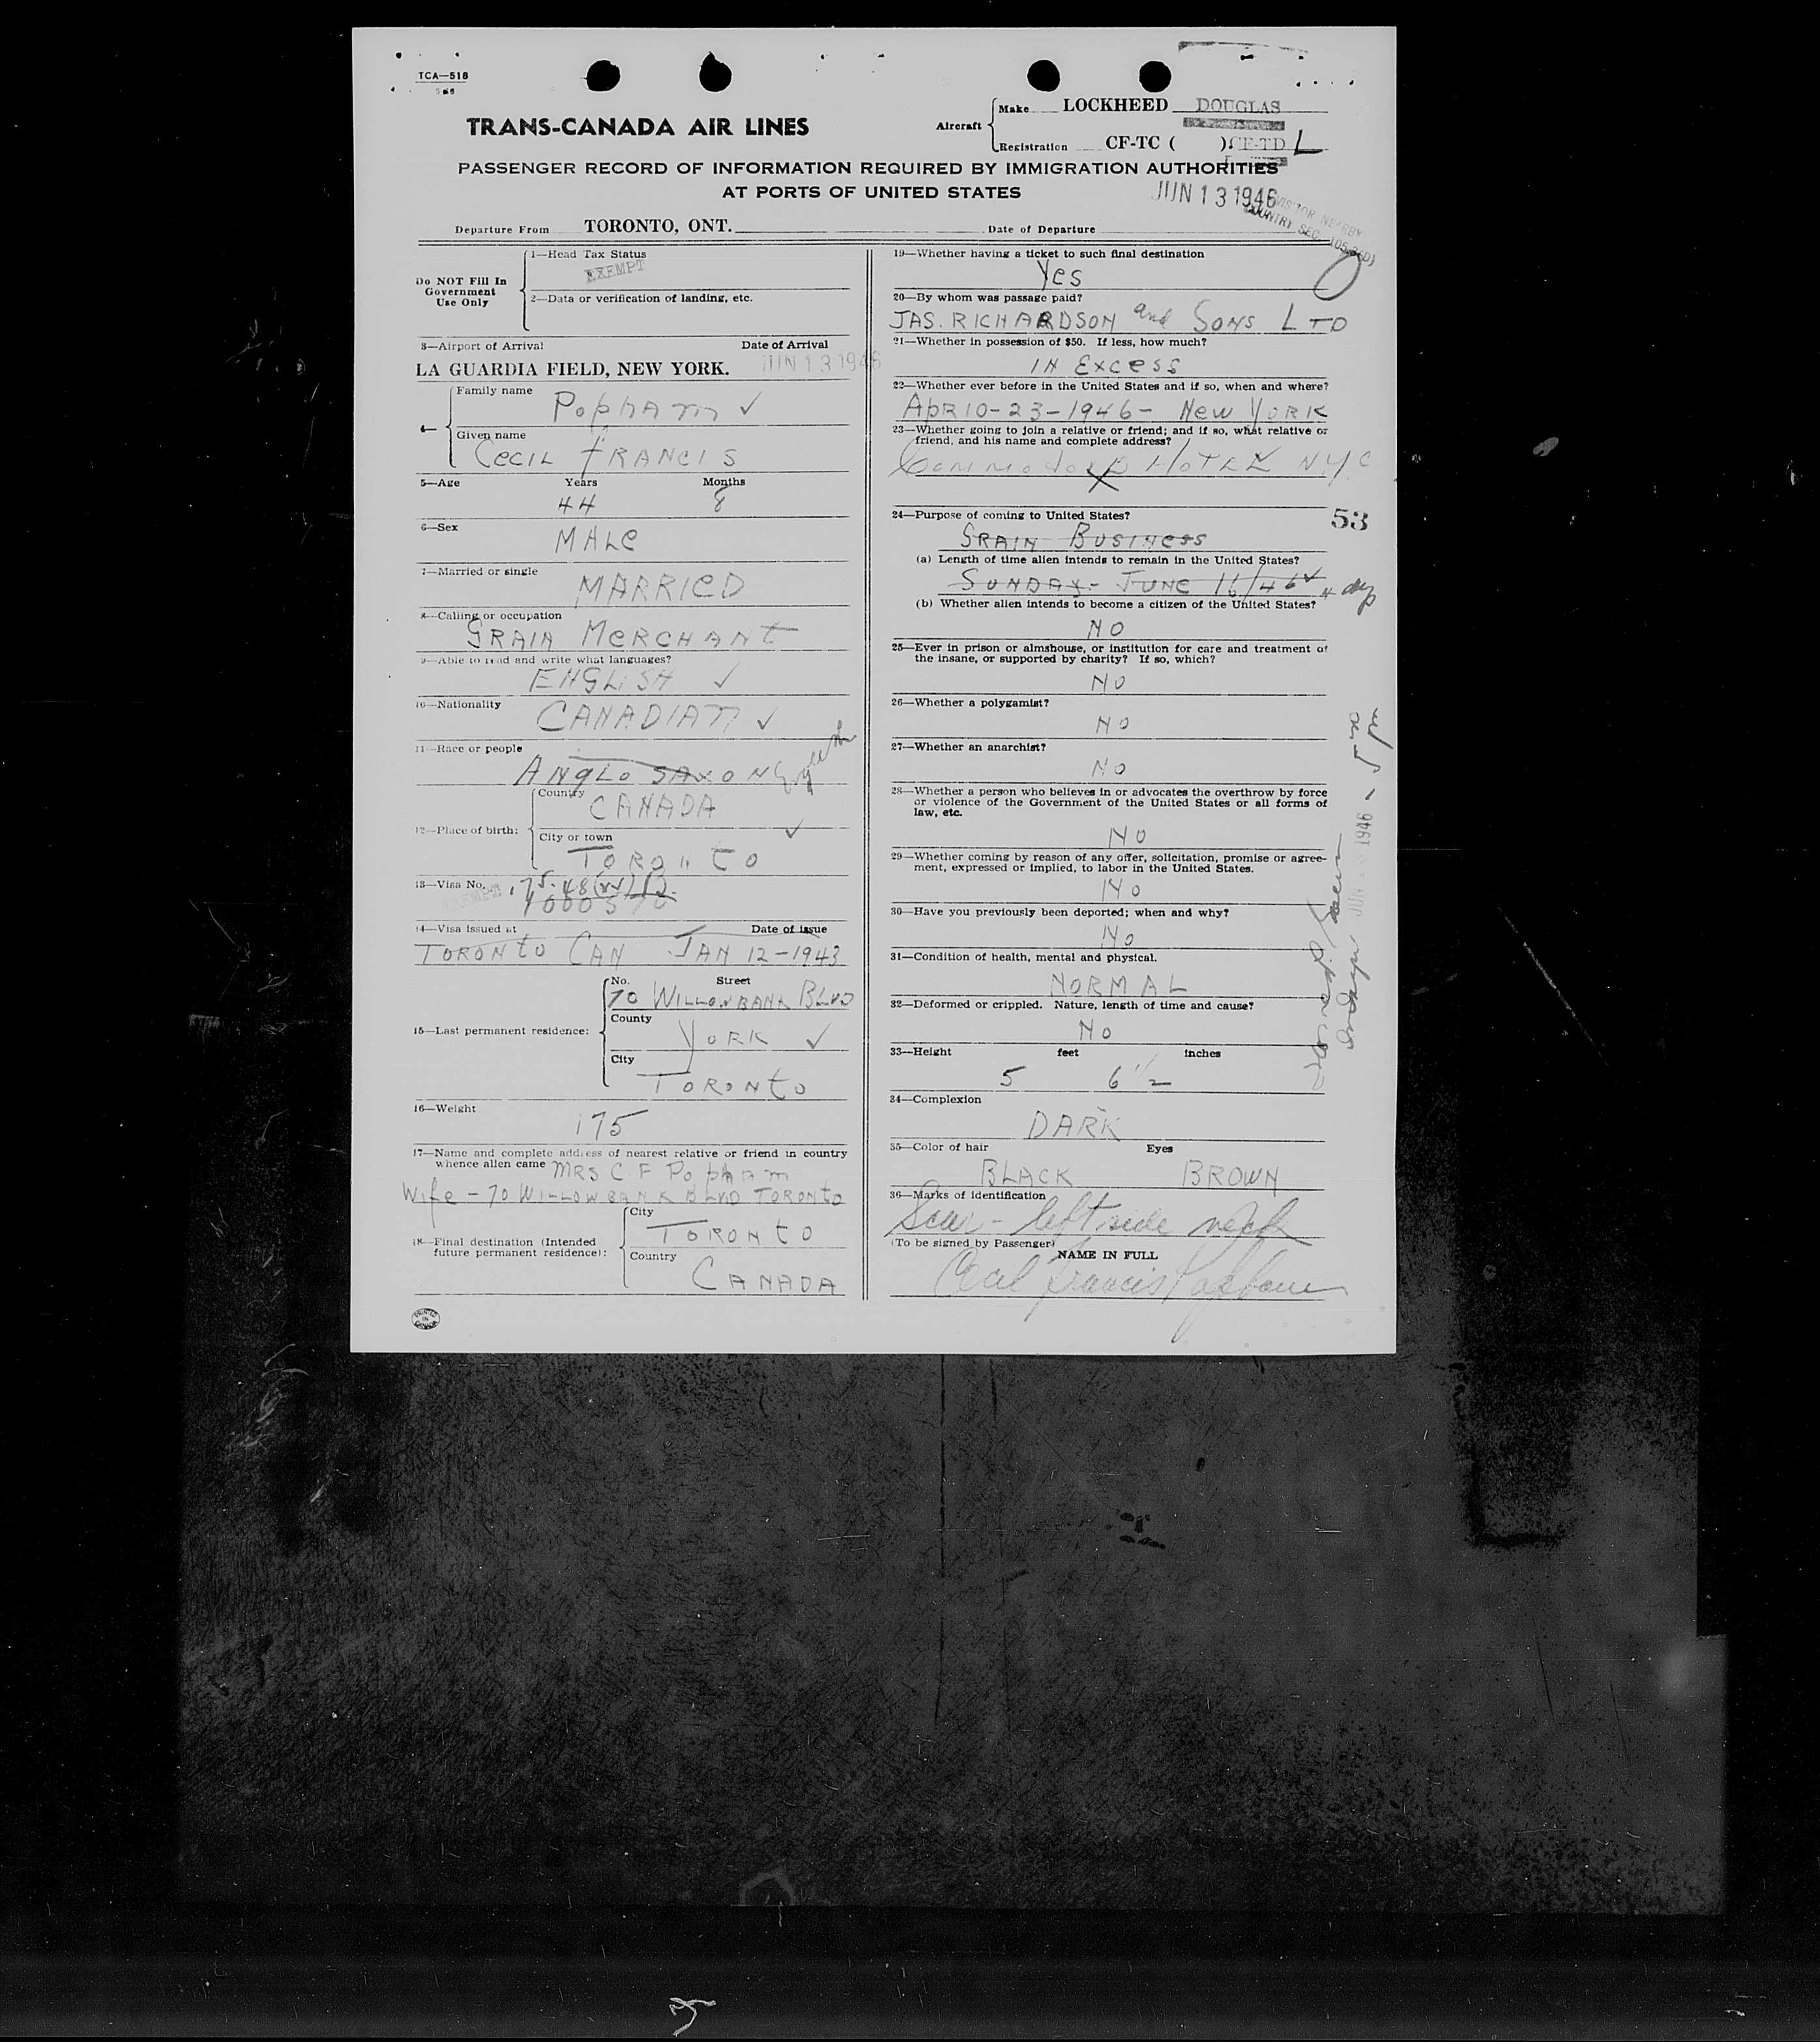 TCA—518
TRANS-CANADA AIR LINES
Aircraft
Make LOCKHEED DOUGLAS
Registration CF-TC ( ) CF-TD L
PASSENGER RECORD OF INFORMATION REQUIRED BY IMMIGRATION AUTHORITIES
AT PORTS OF UNITED STATES
JUN 13 1946
VISITOR NEARBY
COUNTRY SEC.
Departure From TORONTO, ONT. Date of Departure
Do NOT Fill In
Government
Use Only
1—Head Tax Status
EXEMPT
2—Data or verification of landing, etc.
3—Airport of Arrival Date of Arrival
LA GUARDIA FIELD, NEW YORK. JUN 13 1946
Family name
Popham ✓
Given name
Cecil Francis
5—Age Years Months
44 8
6—Sex
MALe
7—Married or single
MARRIeD
8—Calling or occupation
GRAIN MeRCHANt
9—Able to read and write what languages?
ENGLISH ✓
10—Nationality
CANADIAN ✓
11—Race or people
ANGLO SAXON
12—Place of birth:
Country
CANADA
City or town ✓
TORONtO
13—Visa No.
EXEMPT
14—Visa issued at Date of issue
TORONtO CAN JAN 12-1943
15—Last permanent residence:
No. Street
70 WILLOWBANK BLVD
County
YORK ✓
City
TORONtO
16—Weight
175
17—Name and complete address of nearest relative or friend in country
whence alien came MRS C.F Popham
Wife - 70 WILLOWBANK BLVD TORONtO
18—Final destination (Intended
future permanent residence):
City
TORONtO
Country
CANADA
PRINTED
IN
CANADA
19—Whether having a ticket to such final destination
Yes
20—By whom was passage paid?
JAS. RICHARDSON and SONS LTD
21—Whether in possession of $50. If less, how much?
IN Excess
22—Whether ever before in the United States and if so, when and where?
APR 10-23-1946- New YORK
23—Whether going to join a relative or friend; and if so, what relative or
friend, and his name and complete address?
Commodore HOTEL NYC
X
53
24—Purpose of coming to United States?
GRAIN BUSINess
(a) Length of time alien intends to remain in the United States?
SUNDAY- JUNE 16/46 4 days
(b) Whether alien intends to become a citizen of the United States?
NO
25—Ever in prison or almshouse, or institution for care and treatment of
the insane, or supported by charity? If so, which?
NO
26—Whether a polygamist?
NO
27—Whether an anarchist?
NO
28—Whether a person who believes in or advocates the overthrow by force
or violence of the Government of the United States or all forms of
law, etc.
NO
29—Whether coming by reason of any offer, solicitation, promise or agree-
ment, expressed or implied, to labor in the United States.
NO
30—Have you previously been deported; when and why?
NO
31—Condition of health, mental and physical.
NORMAL
32—Deformed or crippled. Nature, length of time and cause?
NO
33—Height feet inches
5 6 1/2
34—Complexion
DARK
35—Color of hair Eyes
BLACK BROWN
36—Marks of identification
Scar - left side neck
(To be signed by Passenger) NAME IN FULL
Cecil Francis Popham